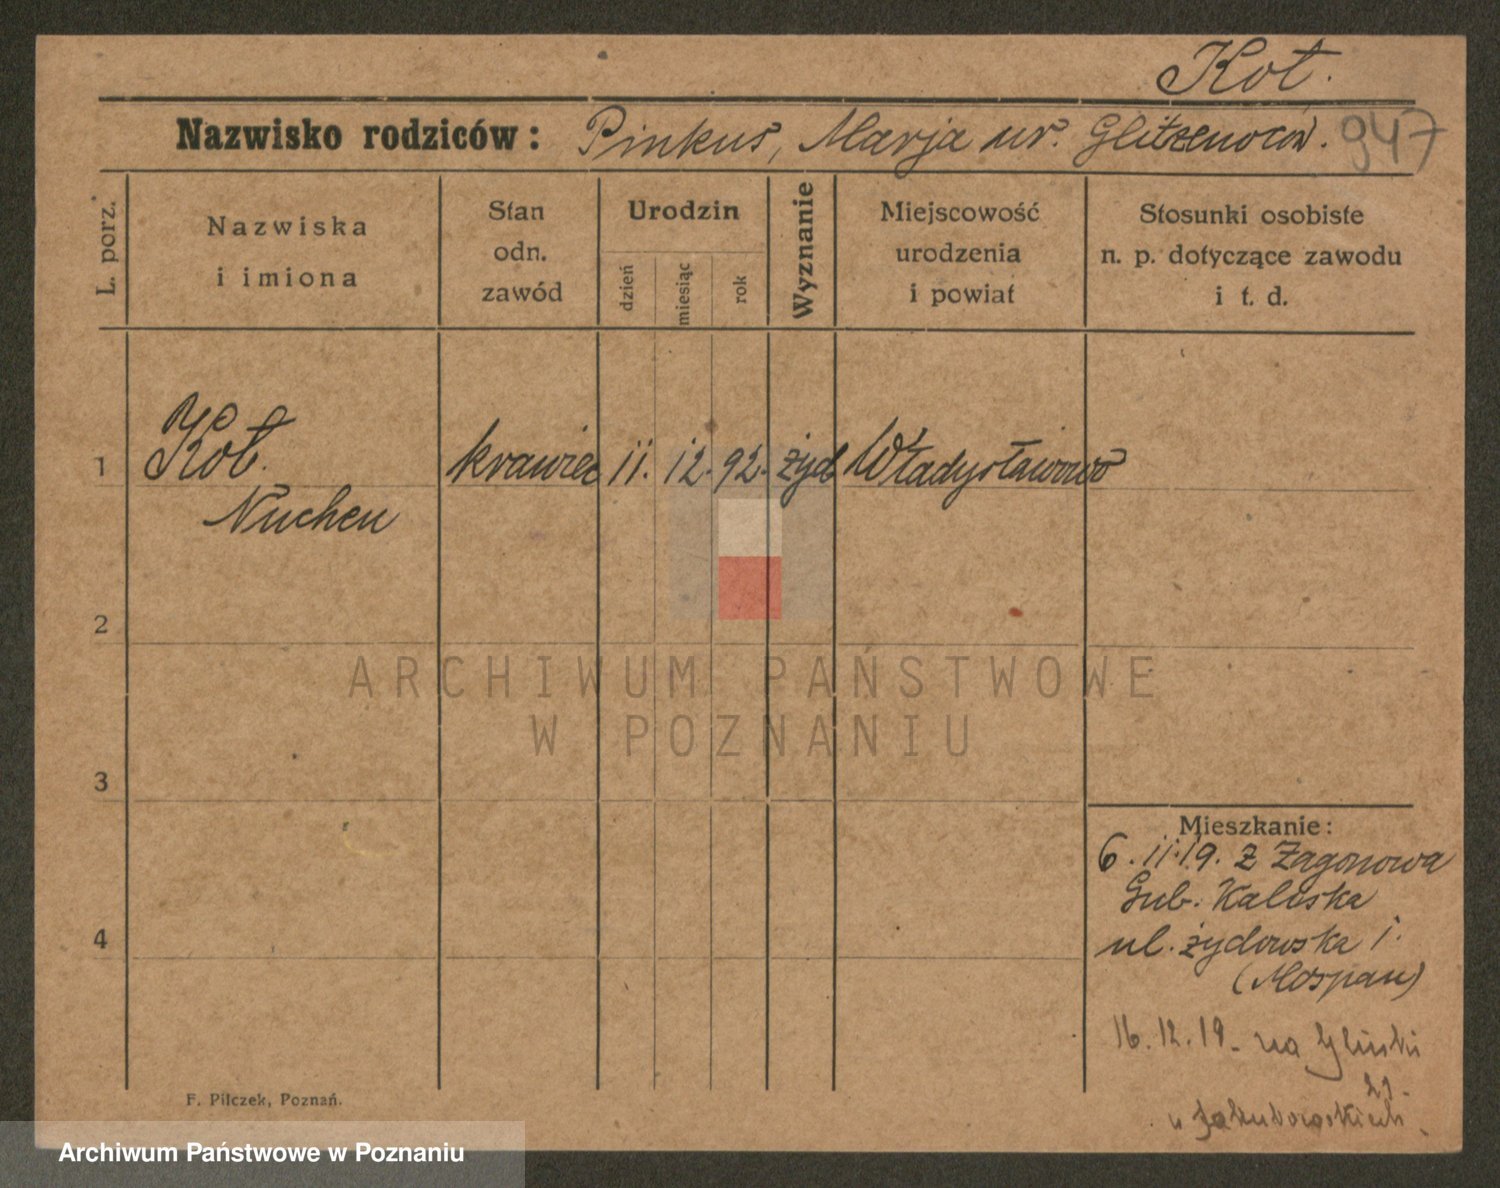 Kot.
Nazwisko rodziców: Pinkus, Marja ur. Glitzenoców. 947
L. porz.
Nazwiska
i imiona
Stan
odn.
zawód
Urodzin
dzień
miesiąc
rok
Wyznanie
Miejscowość
urodzenia
i powiat
Stosunki osobiste
n. p. dotyczące zawodu
i t. d.
1 Kot krawiec 11. 12. 92. żyd Władysławowo
Nuchen
2
3
4
Mieszkanie:
6.11.19. z Zagonowa
Gub. Kaliska
ul. żydowska 1.
(Mospan)
16.12.19. na
u Jakubowskich.
F. Pilczek, Poznań.
ARCHIWUM PAŃSTWOWE
W POZNANIU
Archiwum Państwowe w Poznaniu